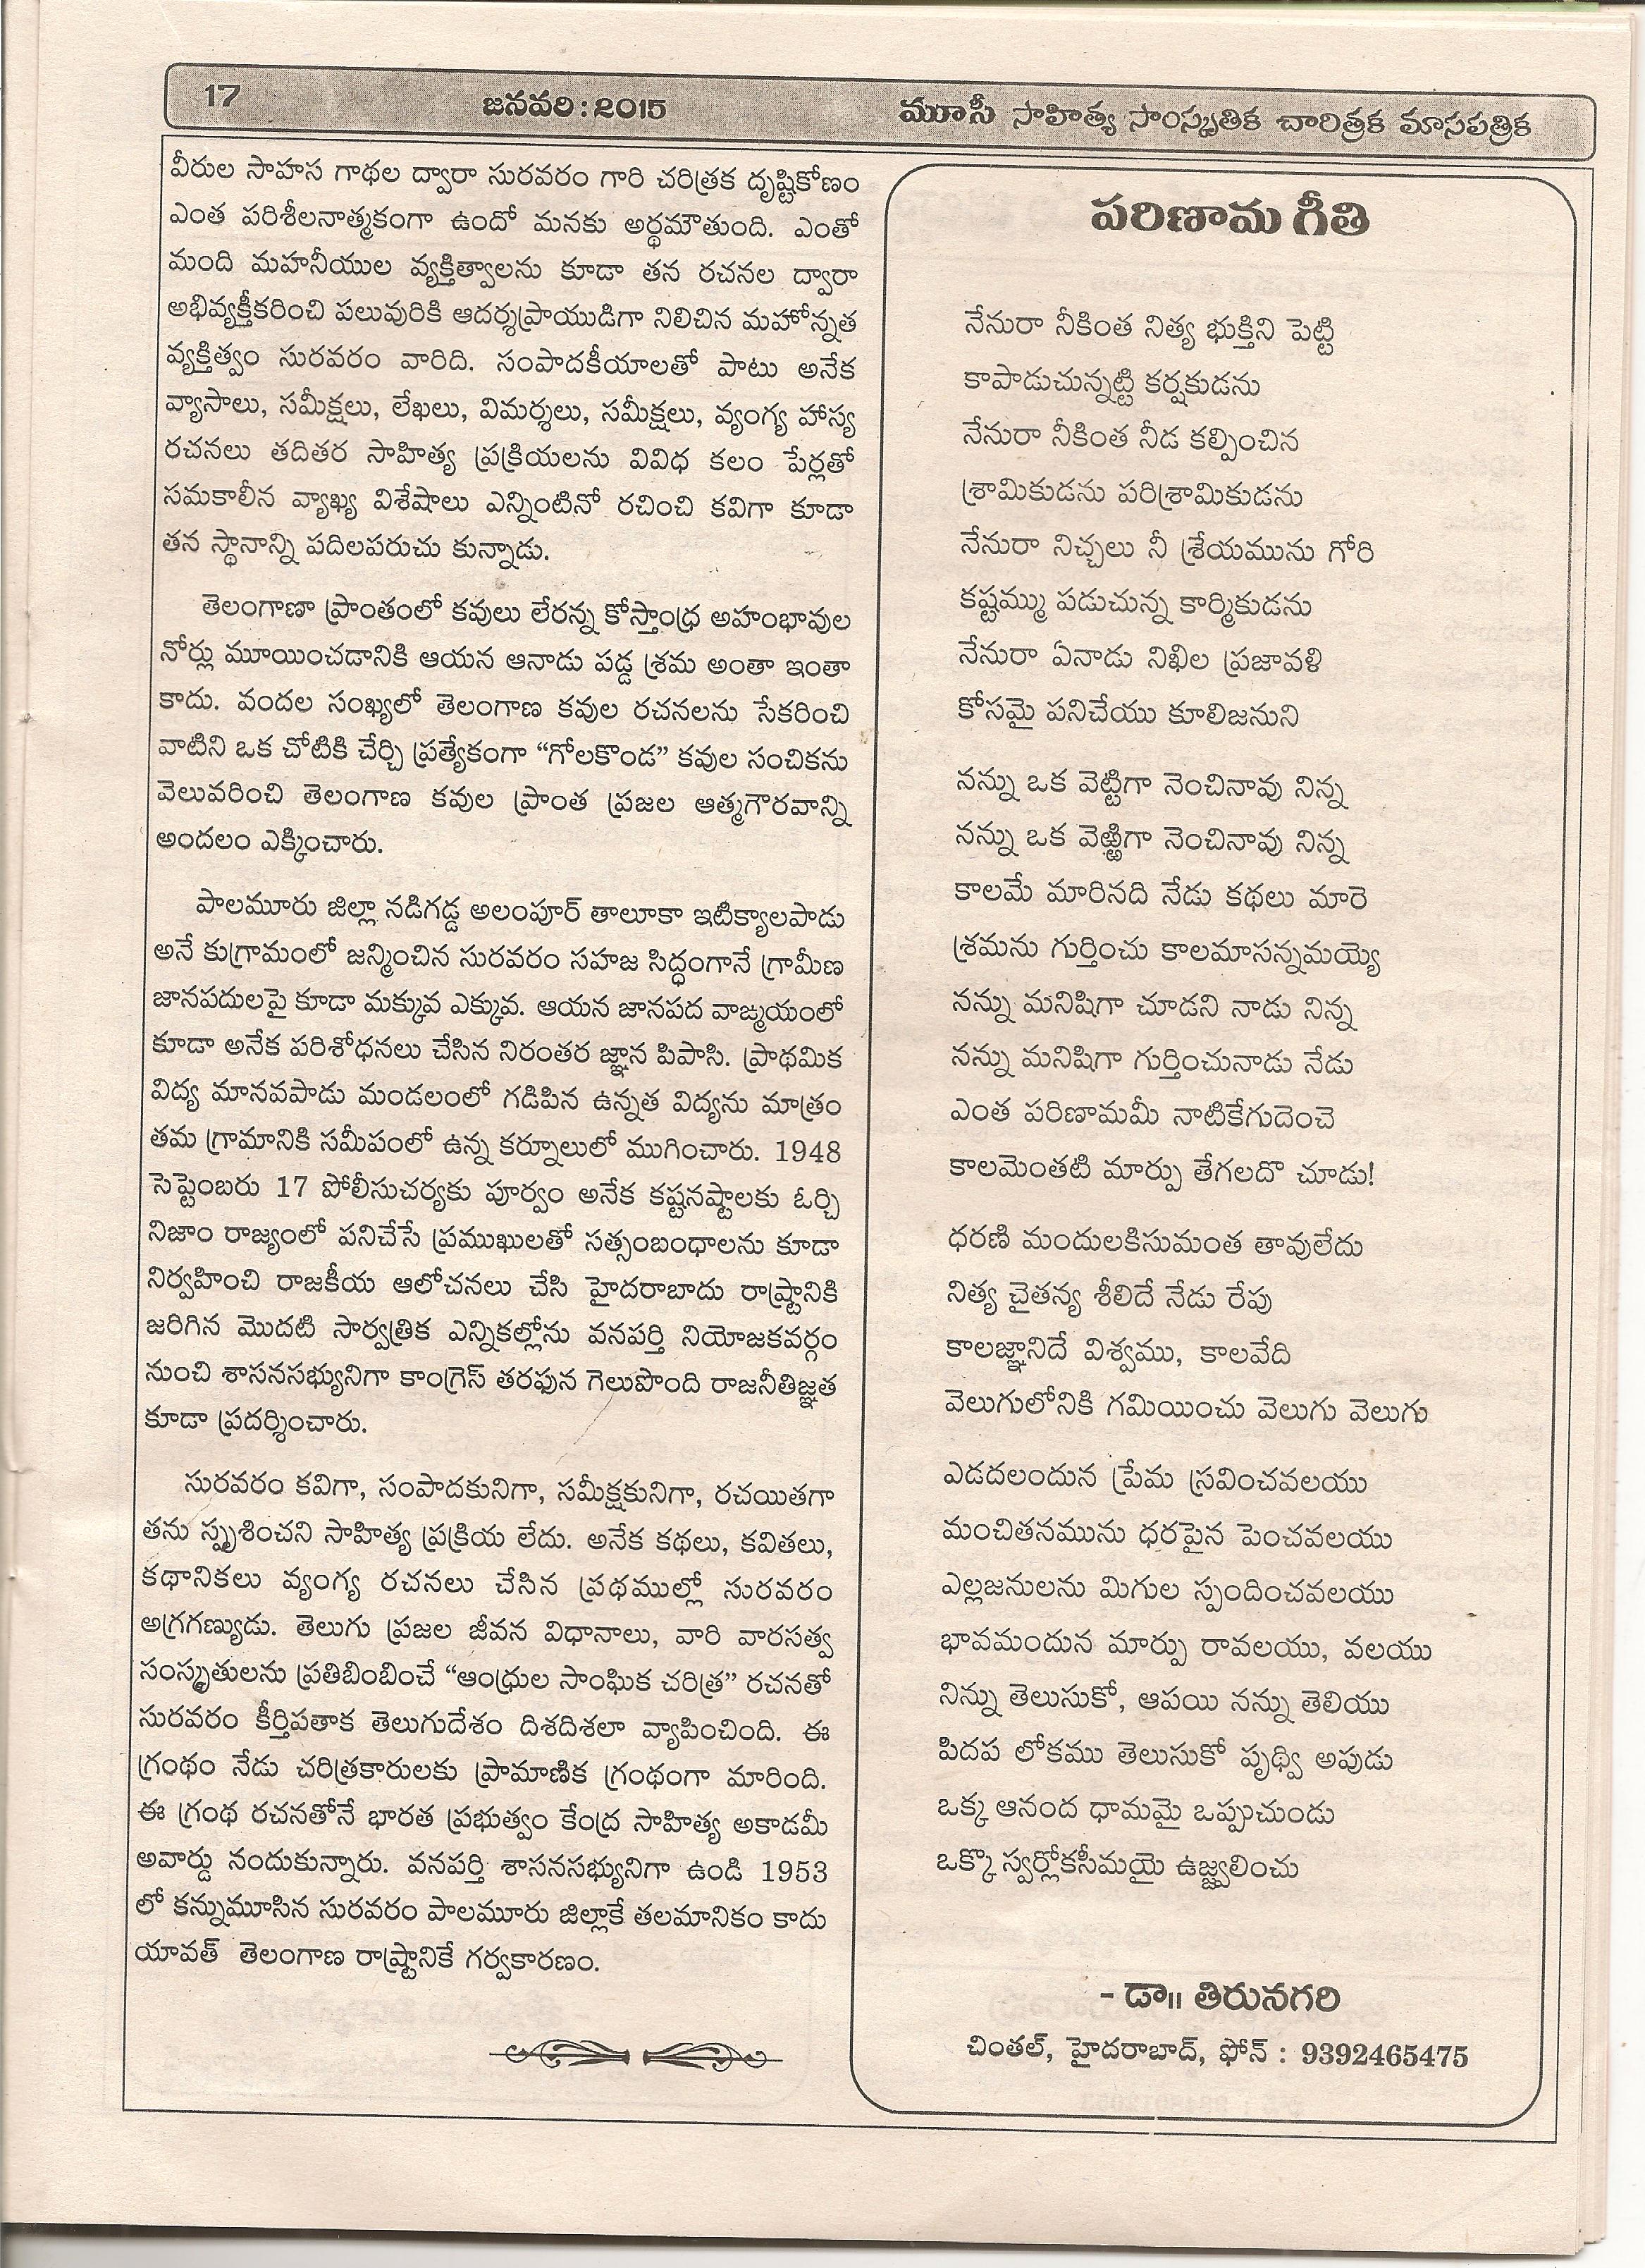 17 జనవరి : 2015 మూసీ సాహిత్య సాంస్కృతిక చారిత్రక మాసపత్రిక
వీరుల సాహస గాథల ద్వారా సురవరం గారి చరిత్రక దృష్టికోణం
ఎంత పరిశీలనాత్మకంగా ఉందో మనకు అర్థమౌతుంది. ఎంతో
మంది మహనీయుల వ్యక్తిత్వాలను కూడా తన రచనల ద్వారా
అభివ్యక్తీకరించి పలువురికి ఆదర్శప్రాయుడిగా నిలిచిన మహోన్నత
వ్యక్తిత్వం సురవరం వారిది. సంపాదకీయాలతో పాటు అనేక
వ్యాసాలు, సమీక్షలు, లేఖలు, విమర్శలు, సమీక్షలు, వ్యంగ్య హాస్య
రచనలు తదితర సాహిత్య ప్రక్రియలను వివిధ కలం పేర్లతో
సమకాలీన వ్యాఖ్య విశేషాలు ఎన్నింటినో రచించి కవిగా కూడా
తన స్థానాన్ని పదిలపరుచు కున్నాడు.
తెలంగాణా ప్రాంతంలో కవులు లేరన్న కోస్తాంధ్ర అహంభావుల
నోర్లు మూయించడానికి ఆయన ఆనాడు పడ్డ శ్రమ అంతా ఇంతా
కాదు. వందల సంఖ్యలో తెలంగాణ కవుల రచనలను సేకరించి
వాటిని ఒక చోటికి చేర్చి ప్రత్యేకంగా “గోలకొండ” కవుల సంచికను
వెలువరించి తెలంగాణ కవుల ప్రాంత ప్రజల ఆత్మగౌరవాన్ని
అందలం ఎక్కించారు.
పాలమూరు జిల్లా నడిగడ్డ అలంపూర్ తాలూకా ఇటిక్యాలపాడు
అనే కుగ్రామంలో జన్మించిన సురవరం సహజ సిద్ధంగానే గ్రామీణ
జానపదులపై కూడా మక్కువ ఎక్కువ. ఆయన జానపద వాఙ్మయంలో
కూడా అనేక పరిశోధనలు చేసిన నిరంతర జ్ఞాన పిపాసి. ప్రాథమిక
విద్య మానవపాడు మండలంలో గడిపిన ఉన్నత విద్యను మాత్రం
తమ గ్రామానికి సమీపంలో ఉన్న కర్నూలులో ముగించారు. 1948
సెప్టెంబరు 17 పోలీసుచర్యకు పూర్వం అనేక కష్టనష్టాలకు ఓర్చి
నిజాం రాజ్యంలో పనిచేసే ప్రముఖులతో సత్సంబంధాలను కూడా
నిర్వహించి రాజకీయ ఆలోచనలు చేసి హైదరాబాదు రాష్ట్రానికి
జరిగిన మొదటి సార్వత్రిక ఎన్నికల్లోను వనపర్తి నియోజకవర్గం
నుంచి శాసనసభ్యునిగా కాంగ్రెస్ తరఫున గెలుపొంది రాజనీతిజ్ఞత
కూడా ప్రదర్శించారు.
సురవరం కవిగా, సంపాదకునిగా, సమీక్షకునిగా, రచయితగా
తను స్పృశించని సాహిత్య ప్రక్రియ లేదు. అనేక కథలు, కవితలు,
కథానికలు వ్యంగ్య రచనలు చేసిన ప్రథముల్లో సురవరం
అగ్రగణ్యుడు. తెలుగు ప్రజల జీవన విధానాలు, వారి వారసత్వ
సంస్కృతులను ప్రతిబింబించే “ఆంధ్రుల సాంఘిక చరిత్ర” రచనతో
సురవరం కీర్తిపతాక తెలుగుదేశం దిశదిశలా వ్యాపించింది. ఈ
గ్రంథం నేడు చరిత్రకారులకు ప్రామాణిక గ్రంథంగా మారింది.
ఈ గ్రంథ రచనతోనే భారత ప్రభుత్వం కేంద్ర సాహిత్య అకాడమీ
అవార్డు నందుకున్నారు. వనపర్తి శాసనసభ్యునిగా ఉండి 1953
లో కన్నుమూసిన సురవరం పాలమూరు జిల్లాకే తలమానికం కాదు
యావత్ తెలంగాణ రాష్ట్రానికే గర్వకారణం.
పరిణామ గీతి
నేనురా నీకింత నిత్య భుక్తిని పెట్టి
కాపాడుచున్నట్టి కర్షకుడను
నేనురా నీకింత నీడ కల్పించిన
శ్రామికుడను పరిశ్రామికుడను
నేనురా నిచ్చలు నీ శ్రేయమును గోరి
కష్టమ్ము పడుచున్న కార్మికుడను
నేనురా ఏనాడు నిఖిల ప్రజావళి
కోసమై పనిచేయు కూలిజనుని
నన్ను ఒక వెట్టిగా నెంచినావు నిన్న
నన్ను ఒక వెఱ్ఱిగా నెంచినావు నిన్న
కాలమే మారినది నేడు కథలు మారె
శ్రమను గుర్తించు కాలమాసన్నమయ్యె
నన్ను మనిషిగా చూడని నాడు నిన్న
నన్ను మనిషిగా గుర్తించునాడు నేడు
ఎంత పరిణామమీ నాటికేగుదెంచె
కాలమెంతటి మార్పు తేగలదొ చూడు!
ధరణి మందులకిసుమంత తావులేదు
నిత్య చైతన్య శీలిదే నేడు రేపు
కాలజ్ఞానిదే విశ్వము, కాలవేది
వెలుగులోనికి గమియించు వెలుగు వెలుగు
ఎడదలందున ప్రేమ స్రవించవలయు
మంచితనమును ధరపైన పెంచవలయు
ఎల్లజనులను మిగుల స్పందించవలయు
భావమందున మార్పు రావలయు, వలయు
నిన్ను తెలుసుకో, ఆపయి నన్ను తెలియు
పిదప లోకము తెలుసుకో పృథ్వి అపుడు
ఒక్క ఆనంద ధామమై ఒప్పుచుండు
ఒక్కొ స్వర్లోకసీమయై ఉజ్జ్వలించు
- డా॥ తిరునగరి
చింతల్, హైదరాబాద్, ఫోన్ : 9392465475